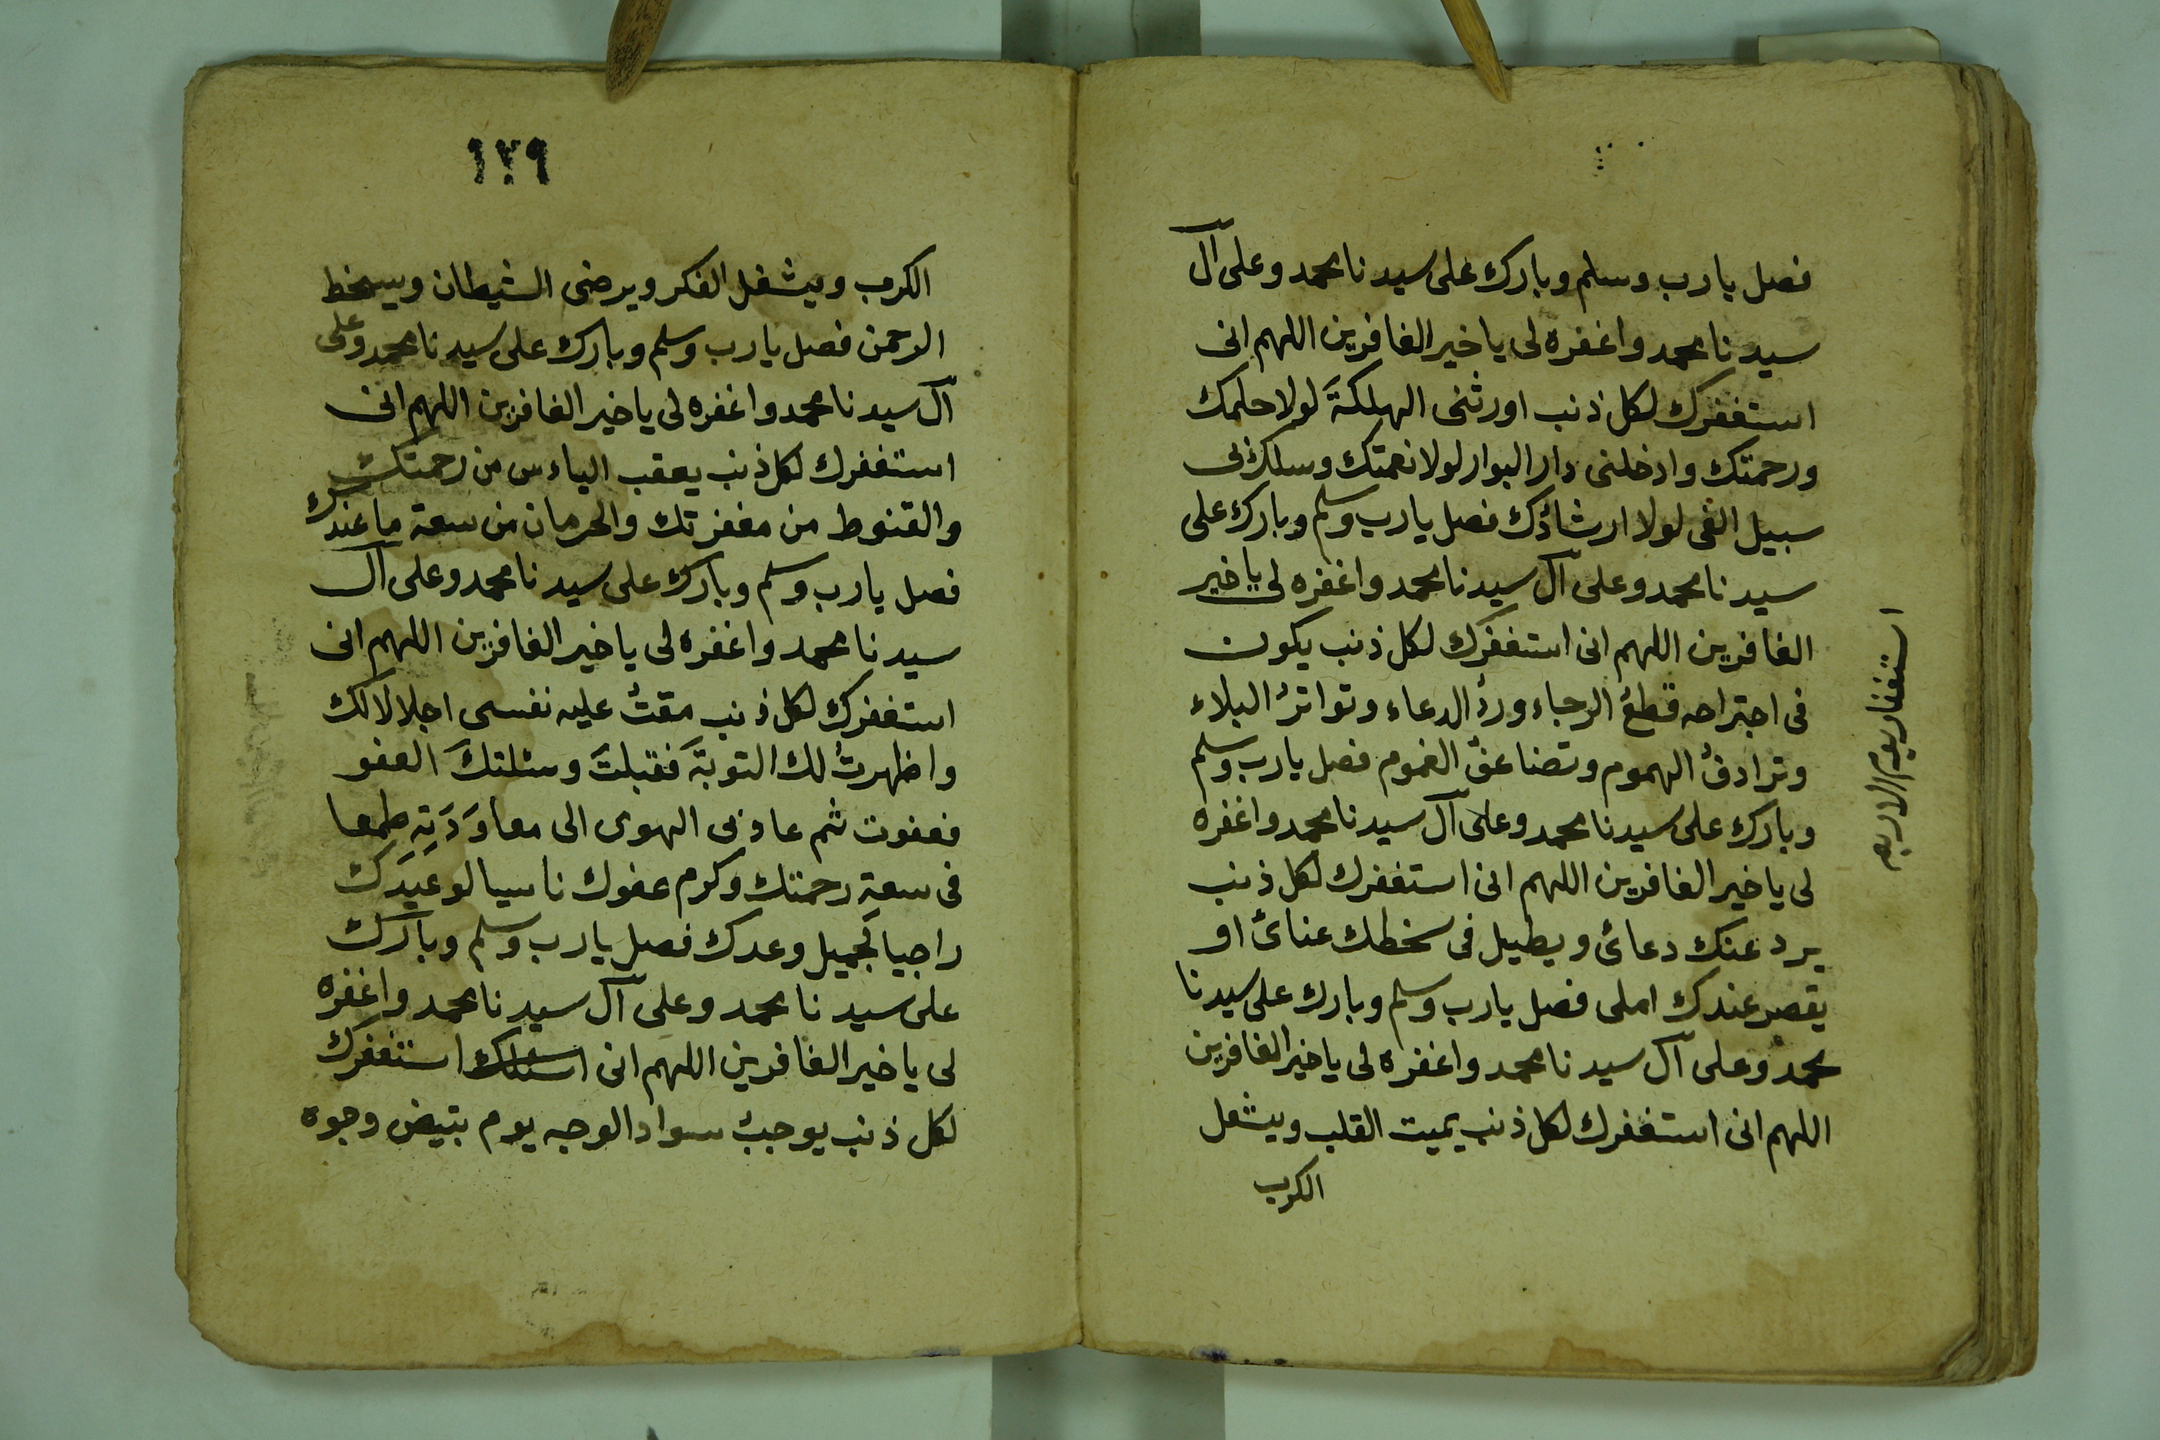 فصل يا رب وسلم وبارك على سيدنا محمد وعلى آل
سيدنا محمد واغفره لى يا خير الغافرين اللهم انى
استغفرك لكل ذنب اورثنى الهلكةَ لولا حلمك
ورحمتك وادخلنى دار البوار لولا نعمتك وسلك بى
سبيل الغى لولا ارشادُك فصل يا رب وسلم وبارك على
سيدنا محمد وعلى آل سيدنا محمد واغفره لى يا خير
الغافرين اللهم انى استغفرك لكل ذنب يكون
فى اجتراحه قطعُ الرجاء وردُ الدعاء وتواترُ البلاء
وترادفُ الهموم وتضاعفُ الغموم فصل يا رب وسلم
وبارك على سيدنا محمد وعلى آل سيدنا محمد واغفره
لى يا خير الغافرين اللهم انى استغفرك لكل ذنب
يرد عنك دعائ ويطيل فى سخطك عنائ او
يقصر عندك املى فصل يا رب وسلم وبارك على سيدنا
محمد وعلى آل سيدنا محمد واغفره لى يا خير الغافرين
اللهم انى استغفرك لكل ذنب يميت القلب ويشعل
الكرب
استغفار يوم الاربع
١٧٩
الكرب ويشغل الفكر ويرضى الشيطان ويسخط
الرحمن فصل يا رب وسلم وبارك على سيدنا محمد وعلى
آل سيدنا محمد واغفره لى يا خير الغافرين اللهم انى
استغفرك لكل ذنب يعقب الياءس من رحمتك
والقنوط من مغفرتك والحرمان من سعة ما عندك
فصل يا رب وسلم وبارك على سيدنا محمد وعلى آل
سيدنا محمد واغفره لى يا خير الغافرين اللهم انى
استغفرك لكل ذنب مقتُ عليه نفسى اجلالا لك
واظهرتُ لك التوبةَ فقبلتَ وسئلتكَ العفو
فعفوت ثم عاد بى الهوى الى معاوَدَتِهِ طمعا
فى سعةِ رحمتك وكرم عفوك ناسيا لوعيدَك
راجيا لجميل وعدك فصل يا رب وسلم وبارك
على سيدنا محمد وعلى آل سيدنا محمد واغفره
لى يا خير الغافرين اللهم انى اسئلك استغفرك
لكل ذنب يوجبُ سواد الوجه يوم تبيض وجوه